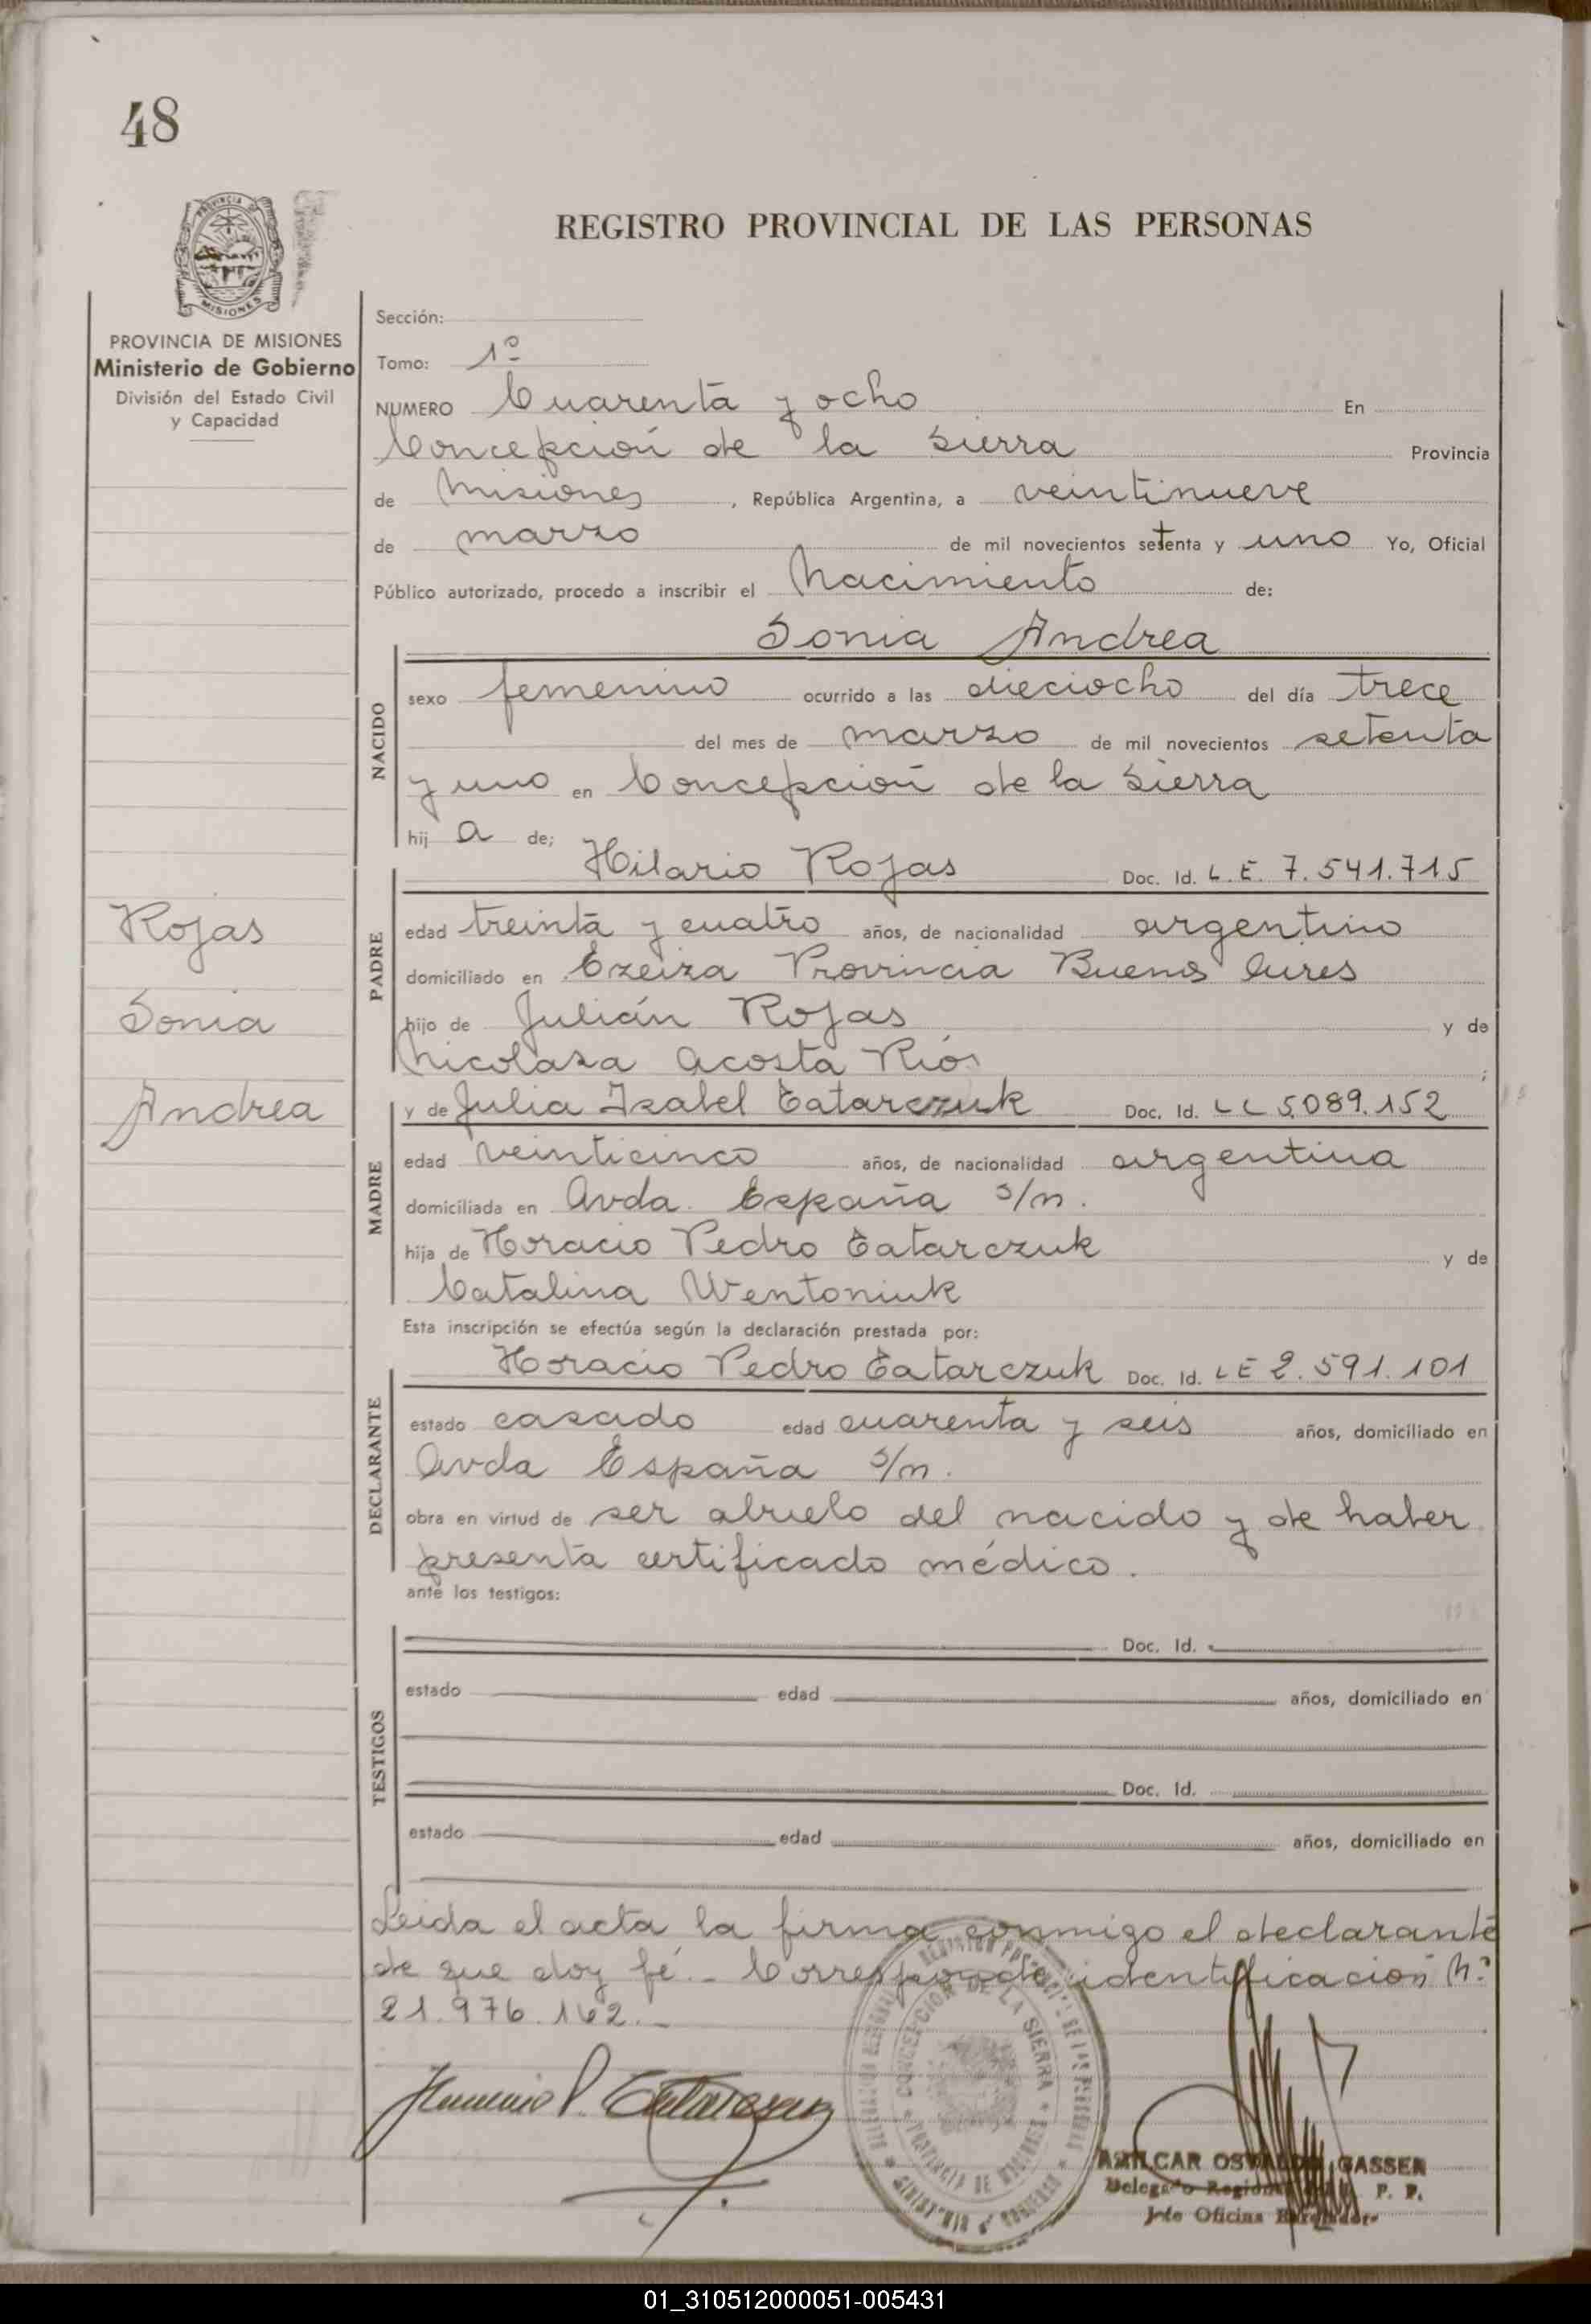 48
PROVINCIA DE MISIONES
Ministerio de Gobierno
División del Estado Civil
y Capacidad
REGISTRO PROVINCIAL DE LAS PERSONAS
Sección:
Tomo: 1º
NUMERO Cuarenta y ocho En
Concepción de la Sierra Provincia
de Misiones, República Argentina, a veintinueve
de marzo de mil novecientos setenta y uno Yo, Oficial
Público autorizado, procedo a inscribir el Nacimiento de:
Sonia Andrea
NACIDO
sexo femenino ocurrido a las dieciocho del día trece
del mes de marzo de mil novecientos setenta
y uno en Concepción de la Sierra
hij a de;
Hilario Rojas Doc. Id. L.E. 7.541.715
PADRE
edad treinta y cuatro años, de nacionalidad argentino
domiciliado en Ezeiza Provincia Buenos Aires
hijo de Julián Rojas y de
Nicolasa Acosta Ríos ;
Rojas
Sonia
Andrea
y de Julia Isabel Tatarczuk Doc. Id. LC 5.089.152
MADRE
edad veinticinco años, de nacionalidad argentina
domiciliada en Avda. España s/n.
hija de Horacio Pedro Tatarczuk y de
Catalina Wentoniuk
Esta inscripción se efectúa según la declaración prestada por:
Horacio Pedro Tatarczuk Doc. Id. LE 2.591.101
DECLARANTE
estado casado edad cuarenta y seis años, domiciliado en
Avda España s/n.
obra en virtud de ser abuelo del nacido y de haber
presenta certificado médico.
ante los testigos:
TESTIGOS
Doc. Id.
estado edad años, domiciliado en
Doc. Id.
estado edad años, domiciliado en
Leida el acta la firma conmigo el declarante
de que doy fé.- Corresponde identificación Nº
21.976.162.-
CONCEPCION DE LA SIERRA
PROVINCIA DE MISIONES
AMILCAR OSVALDO GASSER
Delegado Regional R. P. P.
Jefe Oficina
01_310512000051-005431